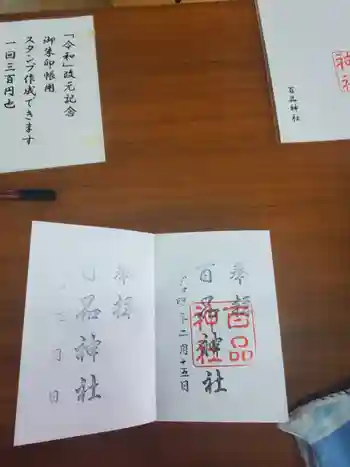 「令和」改元記念
御朱印帳用
スタンプ作成できます
一回三百円也
神
社
百品神社
奉拝
百品神社
百品
神社
二月十五日
奉拝
品神社
月
日